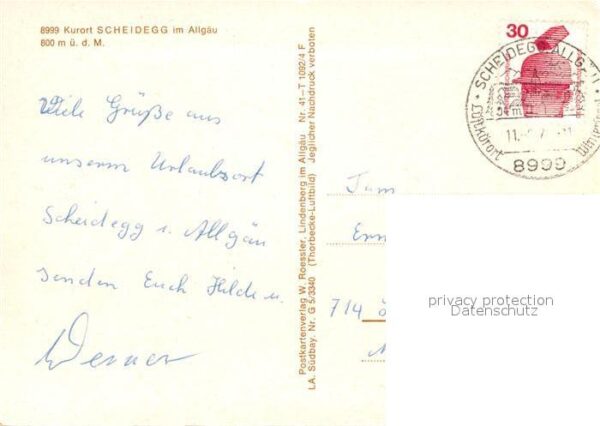 8999 Kurort SCHEIDEGG im Allgäu
800 m ü. d. M.
Viele Grüße aus
unserm Urlaubsort
Scheidegg i. Allgäu
senden Euch Hilde u.
Werner
Postkartenverlag W. Roessler, Lindenberg im Allgäu Nr. 41-T 1092/4 F
LA. Südbay. Nr. G 5/3340 (Thorbecke-Luftbild) Jeglicher Nachdruck verboten
30
SCHEIDEGG ALLGÄU
Luftkurort
8999
Fam
714
privacy protection
Datenschutz